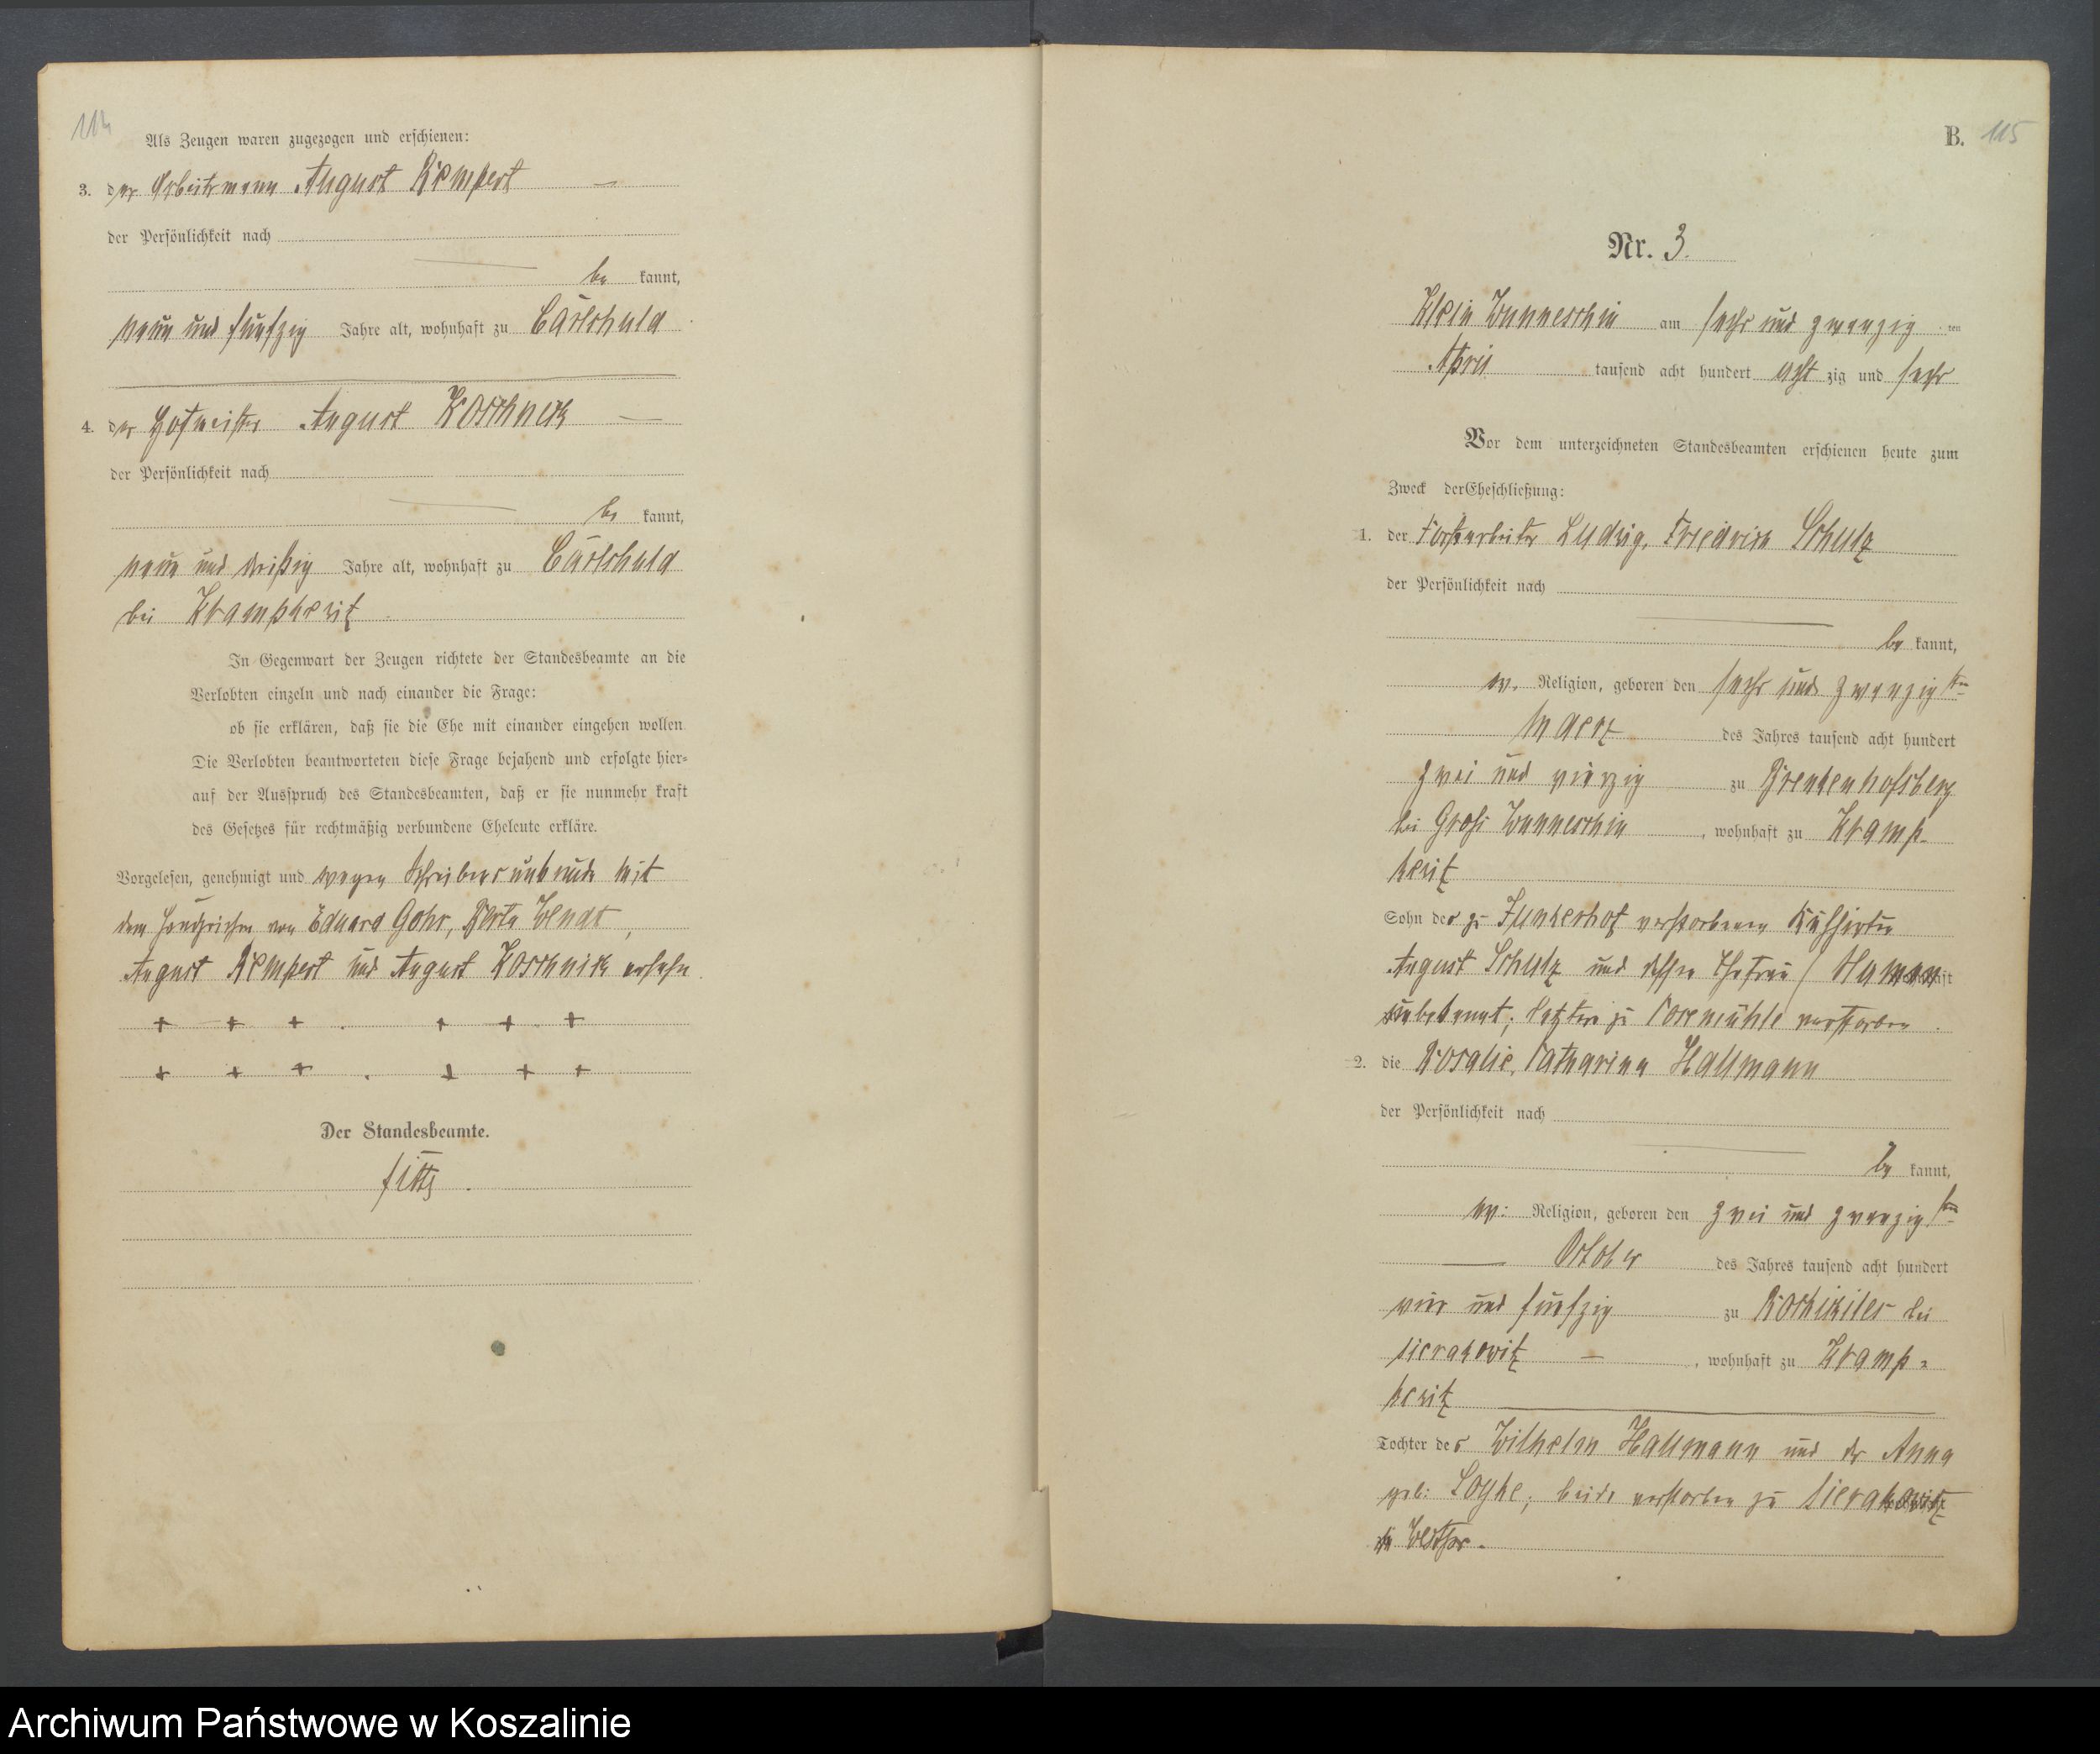 114
Als Zeugen waren zugezogen und erschienen:
3. der Arbeitsmann August Rempert
der Persönlichkeit nach
be kannt,
neun und fünfzig Jahre alt, wohnhaft zu Carlshuld
4. der Hofmeister August Koschnick
der Persönlichkeit nach
be kannt,
neun und dreißig Jahre alt, wohnhaft zu Carlshuld
bei Krampkewitz
In Gegenwart der Zeugen richtete der Standesbeamte an die
Verlobten einzeln und nach einander die Frage:
ob sie erklären, daß sie die Ehe mit einander eingehen wollen
Die Verlobten beantworteten diese Frage bejahend und erfolgte hier-
auf der Ausspruch des Standesbeamten, daß er sie nunmehr kraft
des Gesetzes für rechtmäßig verbundene Eheleute erkläre.
Vorgelesen, genehmigt und wegen Schreibensunkunde mit
dem Handzeichen von Eduard Gohr, Berta Wendt,
August Rempert und August Koschnick versehn.
+ + + . + + +
+ + + . + + +
Der Standesbeamte.
B. 115
Nr. 3.
Klein Wunneschin am sechs und zwanzig ten
April tausend acht hundert acht zig und sechs
Vor dem unterzeichneten Standesbeamten erschienen heute zum
Zweck der Eheschließung:
1. der Forstarbeiter Ludwig, Friedrich Schulz
der Persönlichkeit nach
be kannt,
ev. Religion, geboren den sechs und zwanzigsten
Maerz des Jahres tausend acht hundert
zwei und vierzig zu Brenkenhofsberg
bei Groß Wunneschin, wohnhaft zu Kramp-
kewitz
Sohn des zu Junkerhof verstorbenen Kuhhirten
August Schulz und dessen Ehefrau, Namen
unbekannt, letztere zu verstorben.
2. die Rosalie, Catharina Hallmann
der Persönlichkeit nach
be kannt,
ev. Religion, geboren den zwei und zwanzigsten
October des Jahres tausend acht hundert
vier und fünfzig zu bei
Sierakowitz, wohnhaft zu Kramp-
kewitz
Tochter des Wilhelm Hallmann und der Anna
geb: Loyke, beide verstorben zu Sierakowitz
in Westpr.
Archiwum Państwowe w Koszalinie